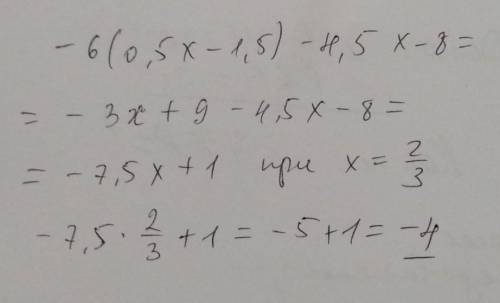 -6(0,5x-1,5)-4,5 x-8=
= -3x+9-4,5x-8=
= -7,5x+1 при x=2/3
-7,5·2/3+1=-5+1=-4